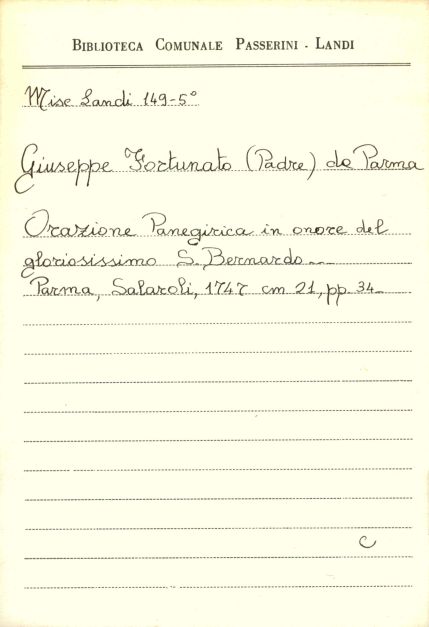 BIBLIOTECA COMUNALE PASSERINI - LANDI
Misc Landi 149-5°
Giuseppe Fortunato (Padre) da Parma
Orazione Panegirica in onore del
gloriosissimo S. Bernardo...
Parma, Salaroli, 1747 cm 21, pp. 34_
C